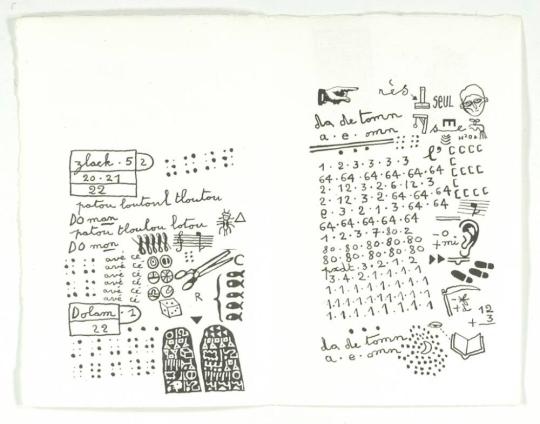 zlack · 5 2
20 · 21
22
patou loutoul tloutou
DO man
patou tloulou lotou
DO mon
avé cé
avé cé
avé cé
avé cé
avé cé
R
Dolam · 1
22
rés
SEUL
da de tomn
a · e · omn
s e
H2O
l'
C C C C
C
C C C C
C
C C C C
1 · 2 · 3 · 3 · 3 · 3
64 · 64 · 64 · 64 · 64 · 64
2 · 12 · 3 · 2 · 6 · 12 · 3
2 · 12 · 3 · 2 · 64 · 64 · 64
e · 3 · 2 · 1 · 3 · 64 · 64
64 · 64 · 64 · 64 · 64
1 · 2 · 3 · 7 · 80 · 2
80 · 80 · 80 · 80 · 80
80 · 80 · 80 · 80 · 80
- 0
+ mi
3 · 2 · 1 · 2
3 · 4 · 2 · 1 · 1 · 1 · 1
1 · 1 · 1 · 1 · 1 · 1 · 1 · 1
1 · 1 · 1 · 1 · 1 · 1 · 1 · 1
1 · 1 · 1 · 1 · 1 · 1 · 1 · 1
12
+ 3
da de tomn
a · e · omn